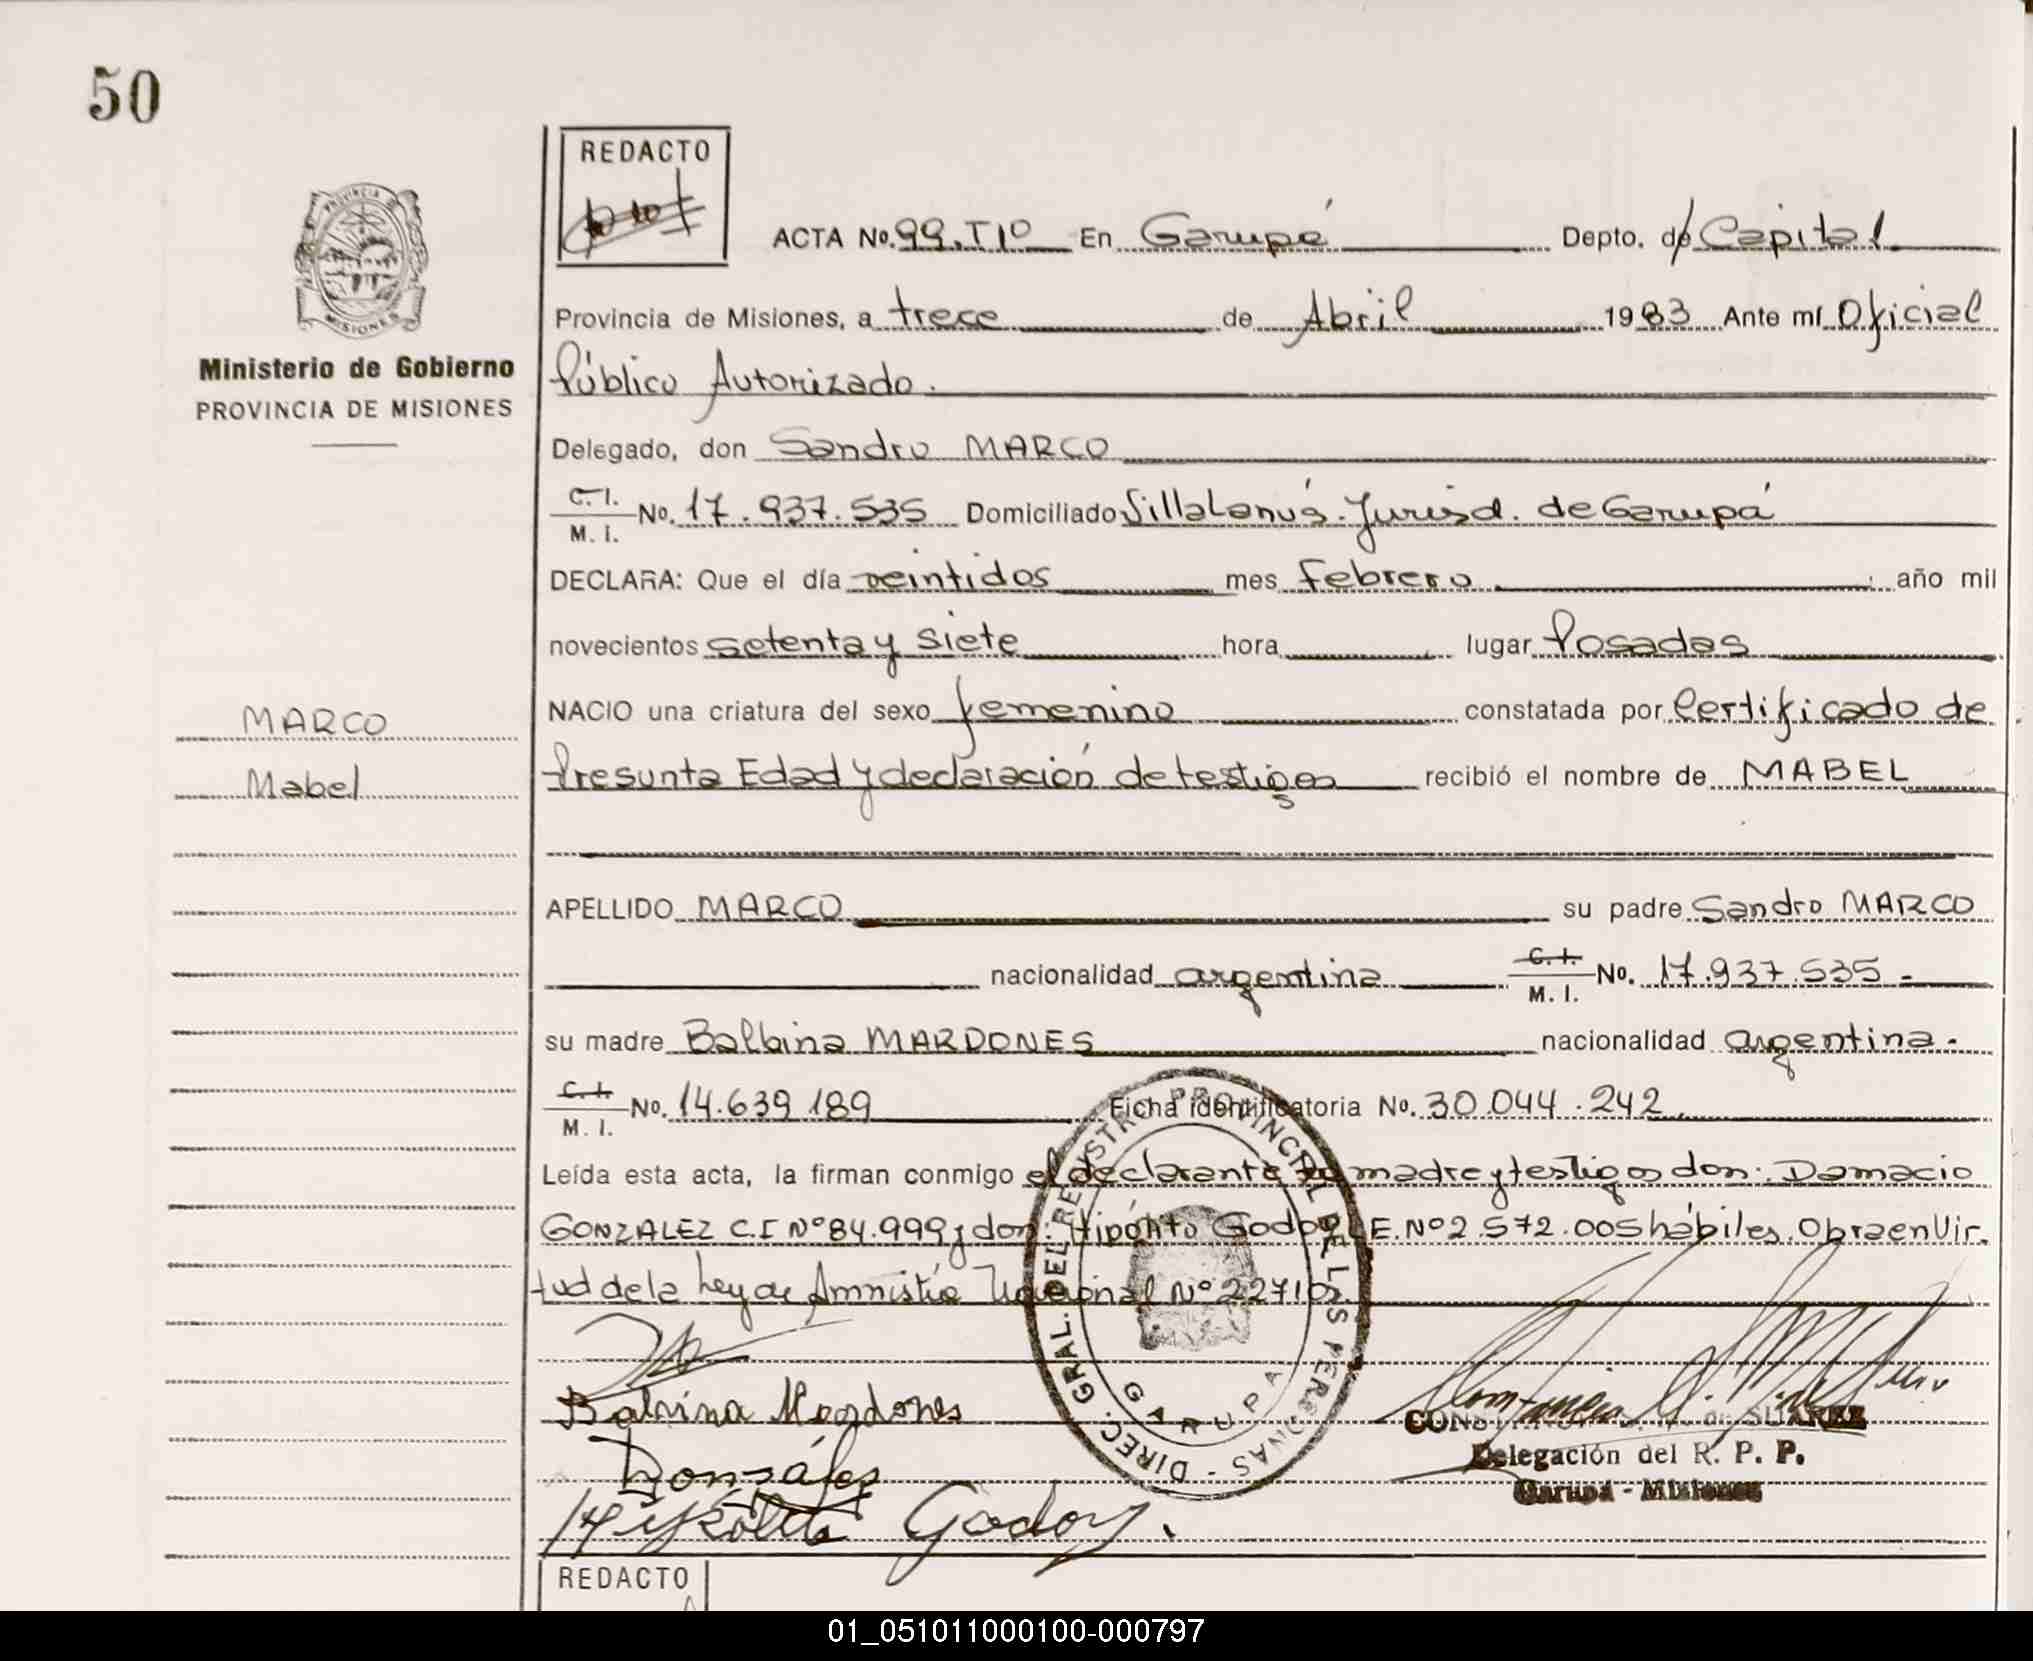 50
REDACTO
ACTA No. 99. TIº En Garupá Depto. de Capital
Provincia de Misiones, a trece de Abril 1983 Ante mí Oficial
Público Autorizado.
Delegado, don Sandro MARCO
C. I. M. I. No. 17.937.535 Domiciliado Villa Lanús. Jurisd. de Garupá
DECLARA: Que el día veintidos mes Febrero año mil
novecientos setenta y siete hora lugar Posadas
NACIO una criatura del sexo femenino constatada por Certificado de
Presunta Edad y declaración de testigos recibió el nombre de MABEL
APELLIDO MARCO su padre Sandro MARCO
nacionalidad argentina C. I. M. I. No. 17.937.535 -
su madre Balbina MARDONES nacionalidad argentina.
C. I. M. I. No. 14.639 189 Ficha identificatoria No. 30.044.242.
Leída esta acta, la firman conmigo el declarante madre y testigos don: Damacio
GONZALEZ C.I Nº 84.999 y don: Hipólito Godoy L.E. Nº 2.572.005 hábiles. Obra en Vir-
tud de la Ley de Amnistía Nacional Nº
Balvina Mardones
Gonsáles
Hipolito Godoy.
PROVINCIA DE MISIONES
Ministerio de Gobierno
PROVINCIA DE MISIONES
MARCO
Mabel
DIREC. GRAL. DEL REGISTRO PROVINCIAL DE LAS PERSONAS - GARUPA
de SUAREZ
Delegación del R. P. P.
Garupá - Misiones
REDACTO
01_051011000100-000797